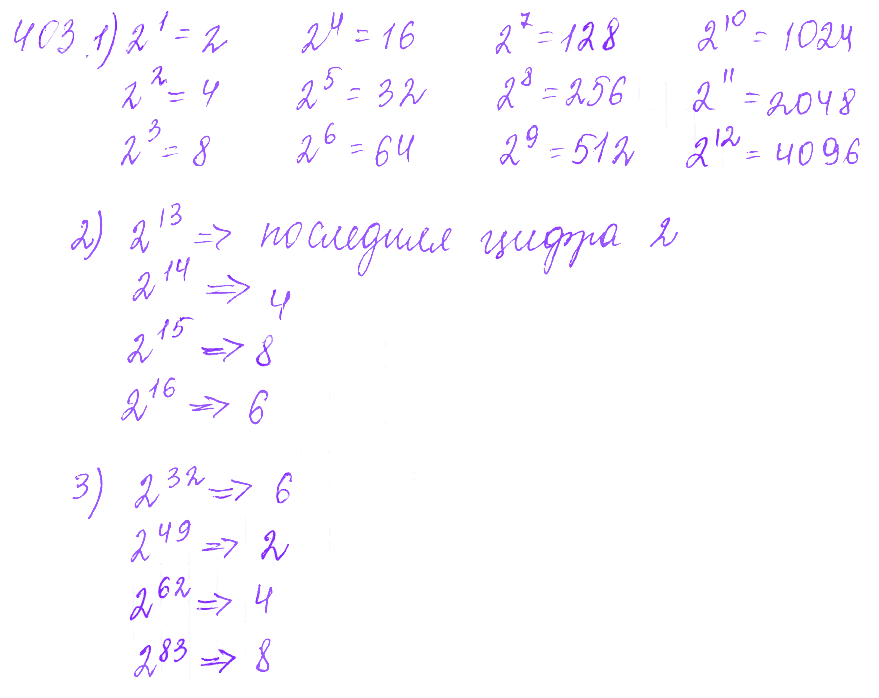 403. 1) 2¹ = 2 2⁴ = 16 2⁷ = 128 2¹⁰ = 1024
2² = 4 2⁵ = 32 2⁸ = 256 2¹¹ = 2048
2³ = 8 2⁶ = 64 2⁹ = 512 2¹² = 4096
2) 2¹³ => последняя цифра 2
2¹⁴ => 4
2¹⁵ => 8
2¹⁶ => 6
3) 2³² => 6
2⁴⁹ => 2
2⁶² => 4
2⁸³ => 8